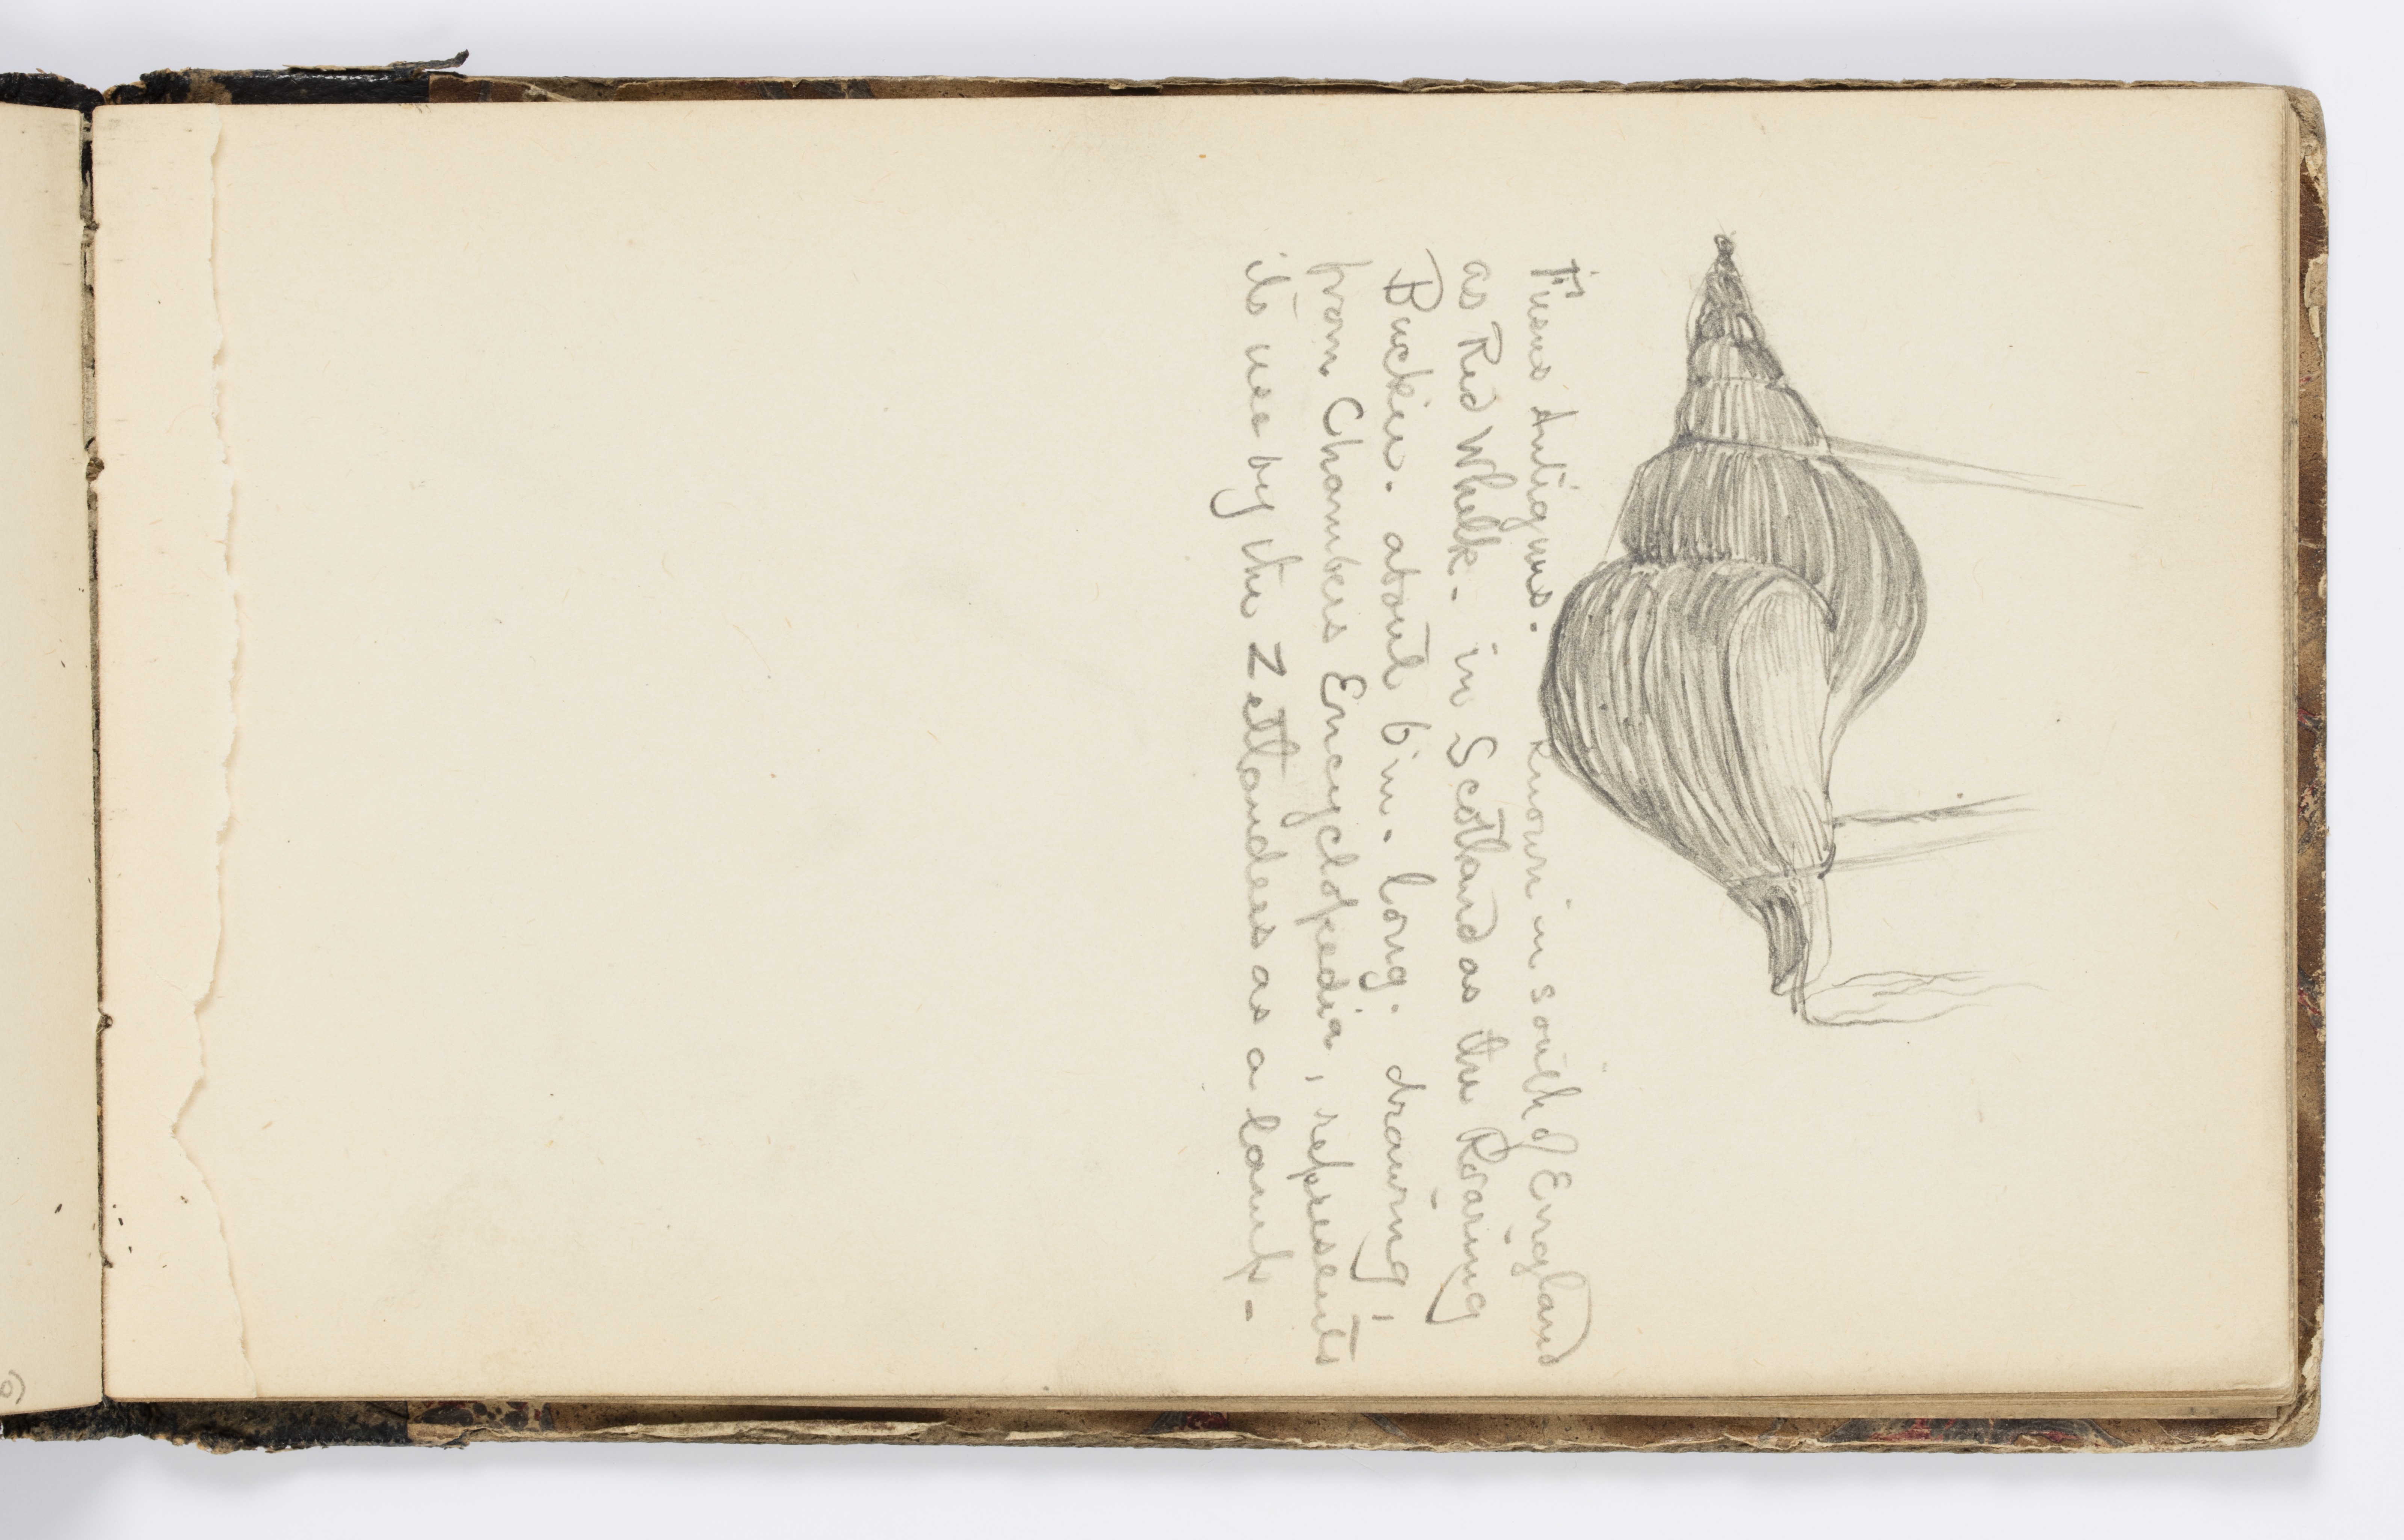 Fusus Antiquus. Known in South of England
as Red Whelk - in Scotland as the Roaring
Buckie. about 6 in. long. drawing,
from Chambers Encyclopedia, represents
its use by the Zetlanders as a lamp -